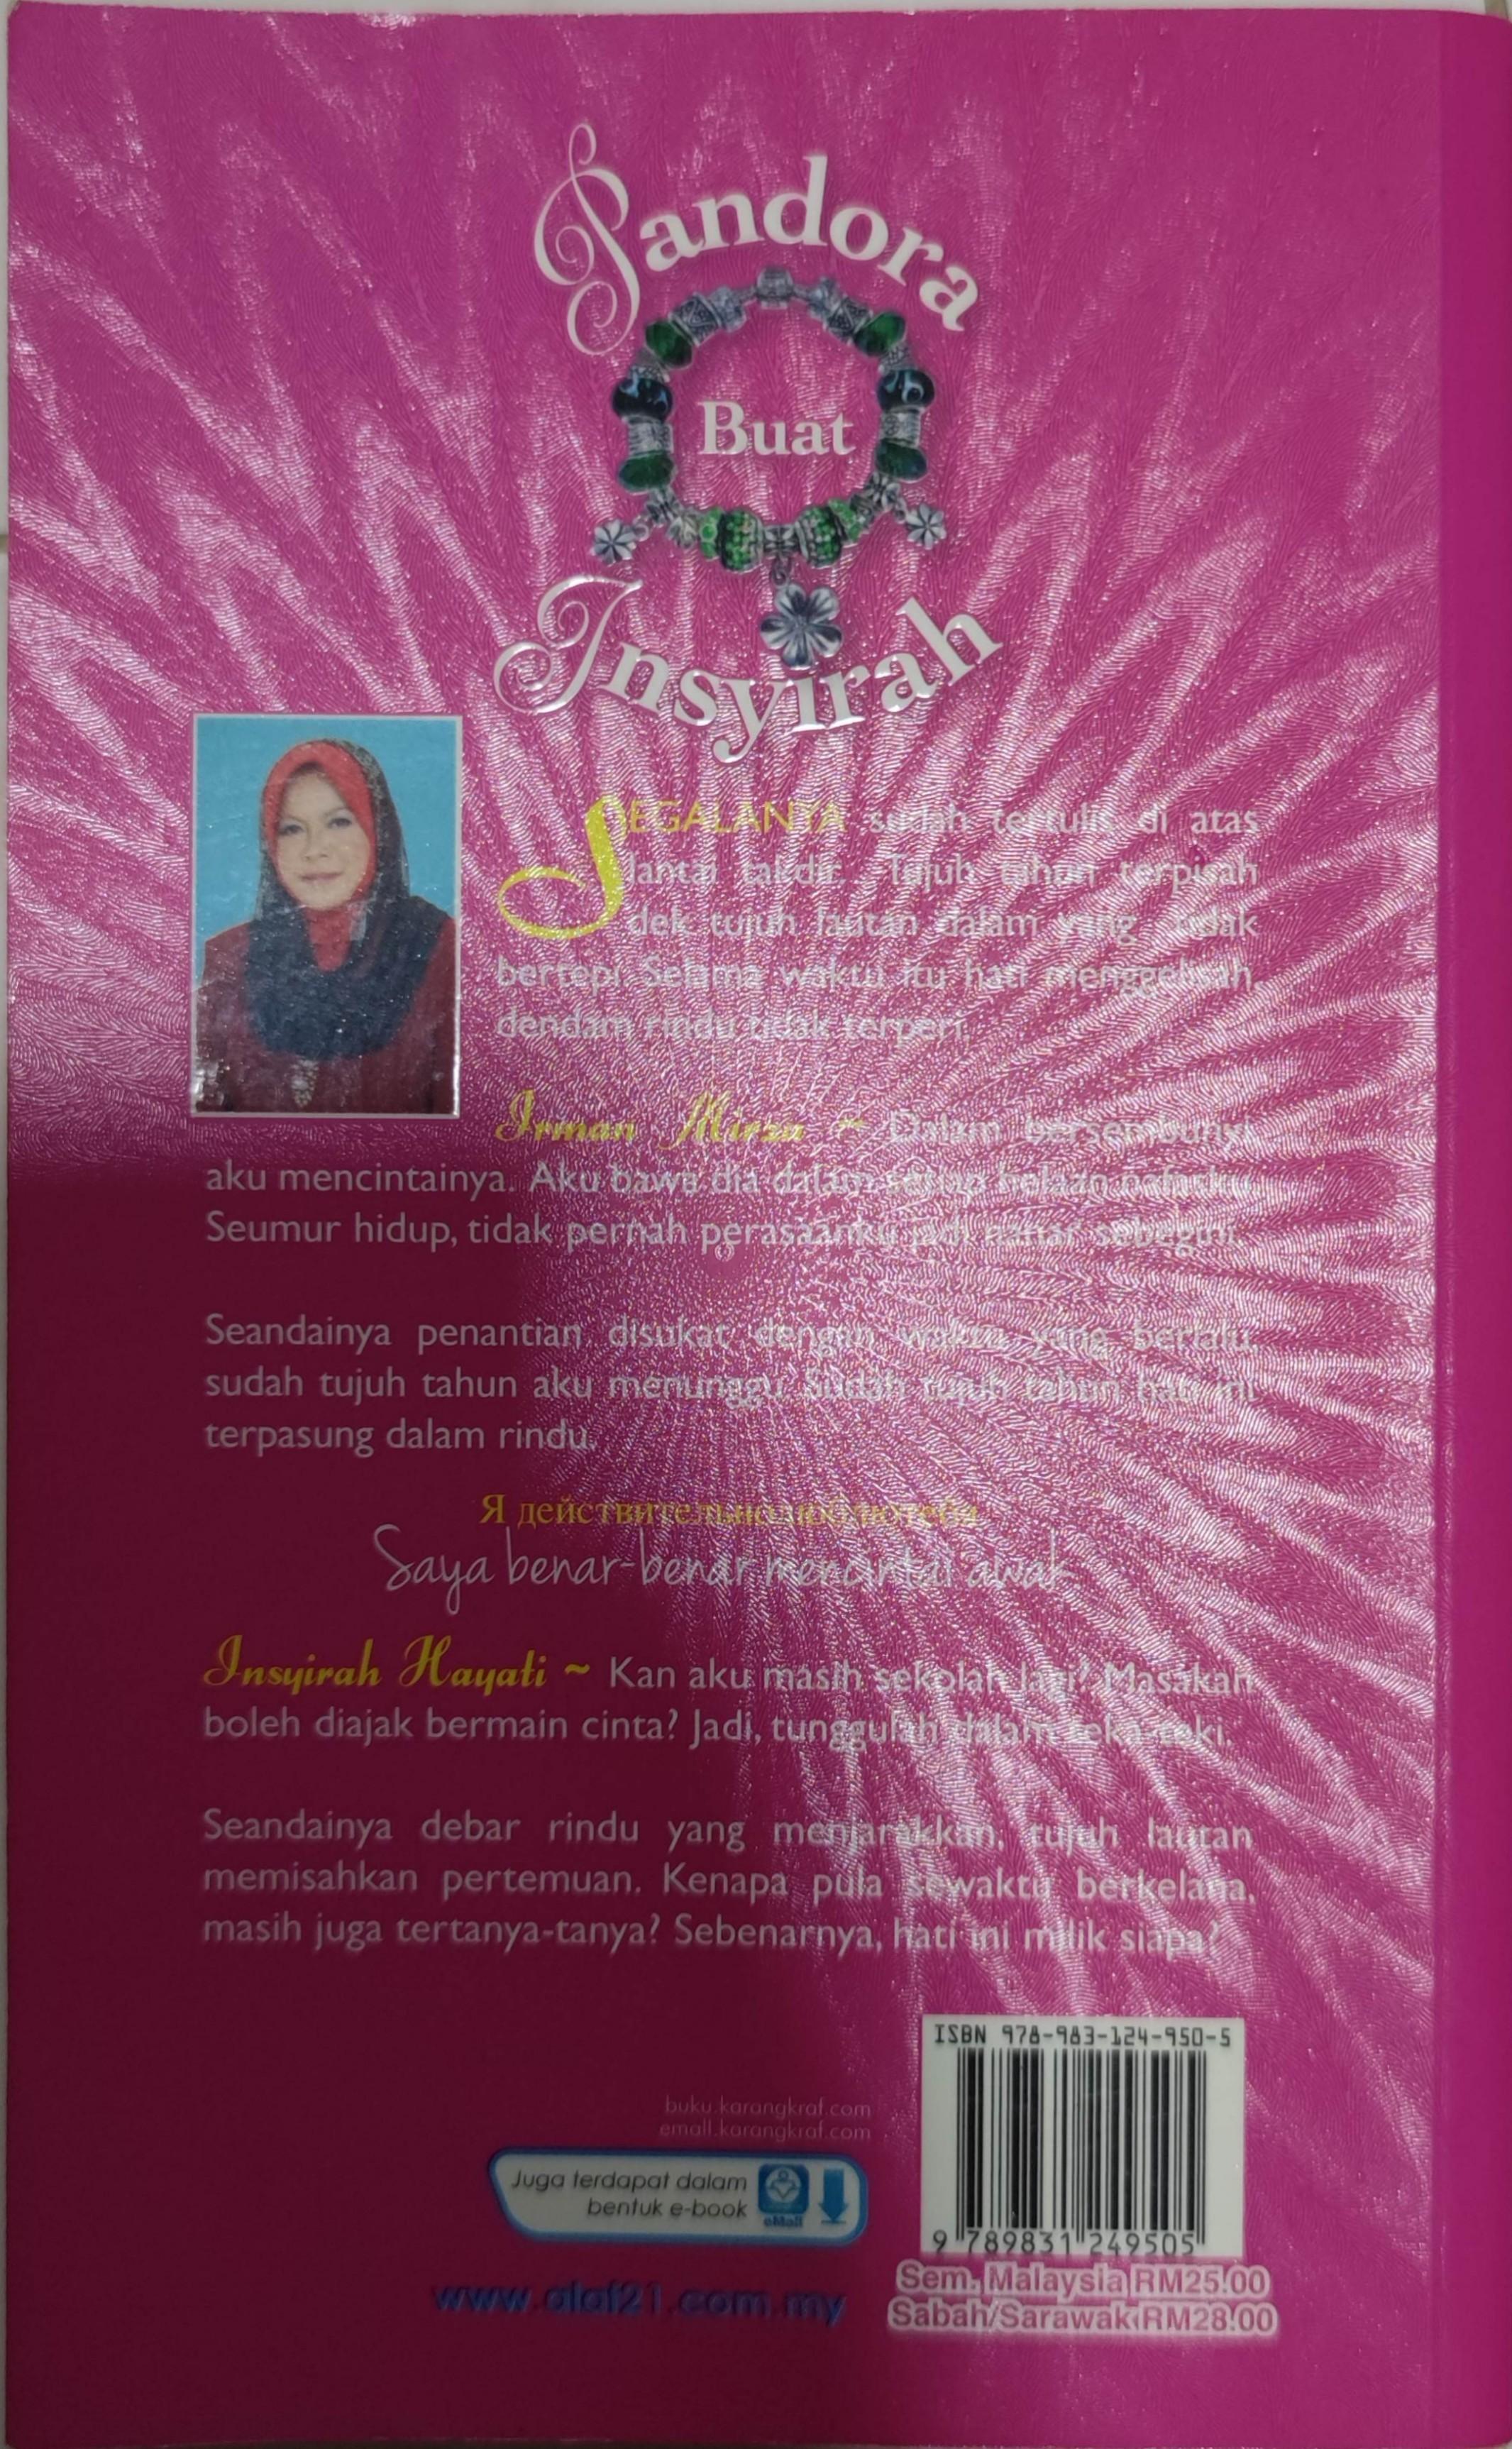 Pandora
Buat
Insyirah
SEGALANYA sudah tertulis di atas
lantai takdir. Tujuh tahun terpisah
dek tujuh lautan dalam yang tidak
bertepi. Selama waktu itu hati menggelisah,
dendam rindu tidak terperi.
Irman Mirza ~ Dalam bersembunyi,
aku mencintainya. Aku bawa dia dalam setiap helaan nafasku.
Seumur hidup, tidak pernah perasaanku jadi nanar sebegini.
Seandainya penantian disukat dengan waktu yang berlalu,
sudah tujuh tahun aku menunggu. Sudah tujuh tahun hati ini
terpasung dalam rindu.
Я действительнолюблютебя
Saya benar-benar mencintai awak
Insyirah Hayati ~ Kan aku masih sekolah lagi? Masakan
boleh diajak bermain cinta? Jadi, tunggulah dalam teka-teki.
Seandainya debar rindu yang menjarakkan, tujuh lautan
memisahkan pertemuan. Kenapa pula sewaktu berkelana,
masih juga tertanya-tanya? Sebenarnya, hati ini milik siapa?
ISBN 978-983-124-950-5
buku.karangkraf.com
emall.karangkraf.com
Juga terdapat dalam
bentuk e-book
eMall
9 789831 249505
www.alaf21.com.my
Sem. Malaysia RM25.00
Sabah/Sarawak RM28.00